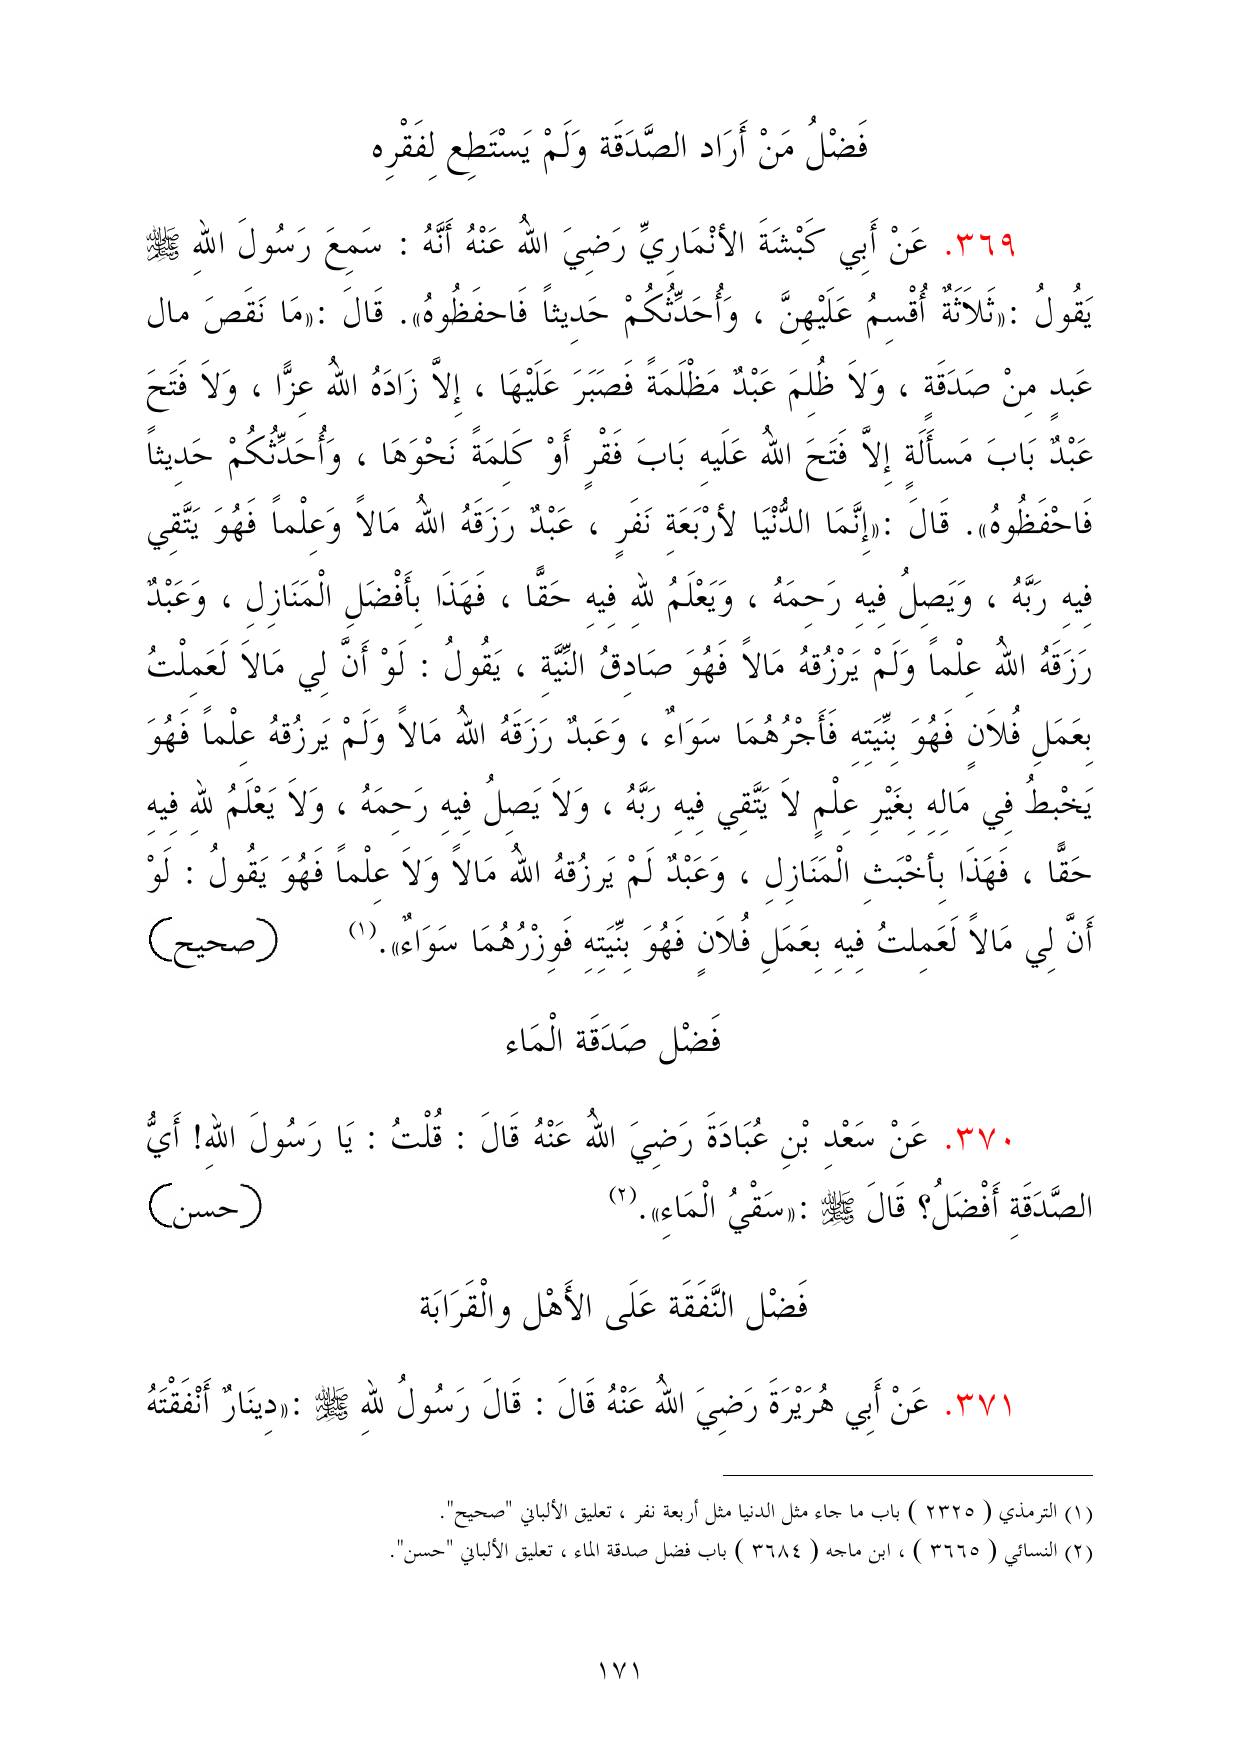 فَضْلُ مَنْ أَرَاد الصَّدَقَة وَلَمْ يَسْتَطِع لِفَقْرِه
٣٦٩. عَنْ أَبِي كَبْشَةَ الأنْمَارِيِّ رَضِيَ اللهُ عَنْهُ أَنَّهُ : سَمِعَ رَسُولَ اللهِ ﷺ
يَقُولُ :«ثَلاَثَةٌ أُقْسِمُ عَلَيْهِنَّ ، وَأُحَدِّثُكُمْ حَدِيثاً فَاحفَظُوهُ». قَالَ :«مَا نَقَصَ مال
عَبدٍ مِنْ صَدَقَةٍ ، وَلاَ ظُلِمَ عَبْدٌ مَظْلَمَةً فَصَبَرَ عَلَيْهَا ، إِلاَّ زَادَهُ اللهُ عِزًّا ، وَلاَ فَتَحَ
عَبْدٌ بَابَ مَسأَلَةٍ إِلاَّ فَتَحَ اللهُ عَلَيهِ بَابَ فَقْرٍ أَوْ كَلِمَةً نَحْوَهَا ، وَأُحَدِّثُكُمْ حَدِيثاً
فَاحْفَظُوهُ». قَالَ :«إِنَّمَا الدُّنْيَا لأرْبَعَةِ نَفَرٍ ، عَبْدٌ رَزَقَهُ اللهُ مَالاً وَعِلْماً فَهُوَ يَتَّقِي
فِيهِ رَبَّهُ ، وَيَصِلُ فِيهِ رَحِمَهُ ، وَيَعْلَمُ للهِ فِيهِ حَقًّا ، فَهَذَا بِأَفْضَلِ الْمَنَازِلِ ، وَعَبْدٌ
رَزَقَهُ اللهُ عِلْماً وَلَمْ يَرْزُقهُ مَالاً فَهُوَ صَادِقُ النِّيَّةِ ، يَقُولُ : لَوْ أَنَّ لِي مَالاَ لَعَمِلْتُ
بِعَمَلِ فُلاَنٍ فَهُوَ بِنِّيَتِهِ فَأَجْرُهُمَا سَوَاءٌ ، وَعَبدٌ رَزَقَهُ اللهُ مَالاً وَلَمْ يَرزُقهُ عِلْماً فَهُوَ
يَخْبطُ فِي مَالِهِ بِغَيْرِ عِلْمٍ لاَ يَتَّقِي فِيهِ رَبَّهُ ، وَلاَ يَصِلُ فِيهِ رَحِمَهُ ، وَلاَ يَعْلَمُ للهِ فِيهِ
حَقًّا ، فَهَذَا بِأخْبَثِ الْمَنَازِلِ ، وَعَبْدٌ لَمْ يَرزُقهُ اللهُ مَالاً وَلاَ عِلْماً فَهُوَ يَقُولُ : لَوْ
أَنَّ لِي مَالاً لَعَمِلتُ فِيهِ بِعَمَلِ فُلاَنٍ فَهُوَ بِنِّيَتِهِ فَوِزْرُهُمَا سَوَاءٌ».(١) (صحيح)
فَضْل صَدَقَة الْمَاء
٣٧٠. عَنْ سَعْدِ بْنِ عُبَادَةَ رَضِيَ اللهُ عَنْهُ قَالَ : قُلْتُ : يَا رَسُولَ اللهِ! أَيُّ
الصَّدَقَةِ أَفْضَلُ؟ قَالَ ﷺ :«سَقْيُ الْمَاءِ».(٢) (حسن)
فَضْل النَّفَقَة عَلَى الأَهْل والْقَرَابَة
٣٧١. عَنْ أَبِي هُرَيْرَةَ رَضِيَ اللهُ عَنْهُ قَالَ : قَالَ رَسُولُ للهِ ﷺ :«دِينَارٌ أَنْفَقْتَهُ
(١) الترمذي ( ٢٣٢٥ ) باب ما جاء مثل الدنيا مثل أربعة نفر ، تعليق الألباني "صحيح".
(٢) النسائي ( ٣٦٦٥ ) ، ابن ماجه ( ٣٦٨٤ ) باب فضل صدقة الماء ، تعليق الألباني "حسن".
١٧١